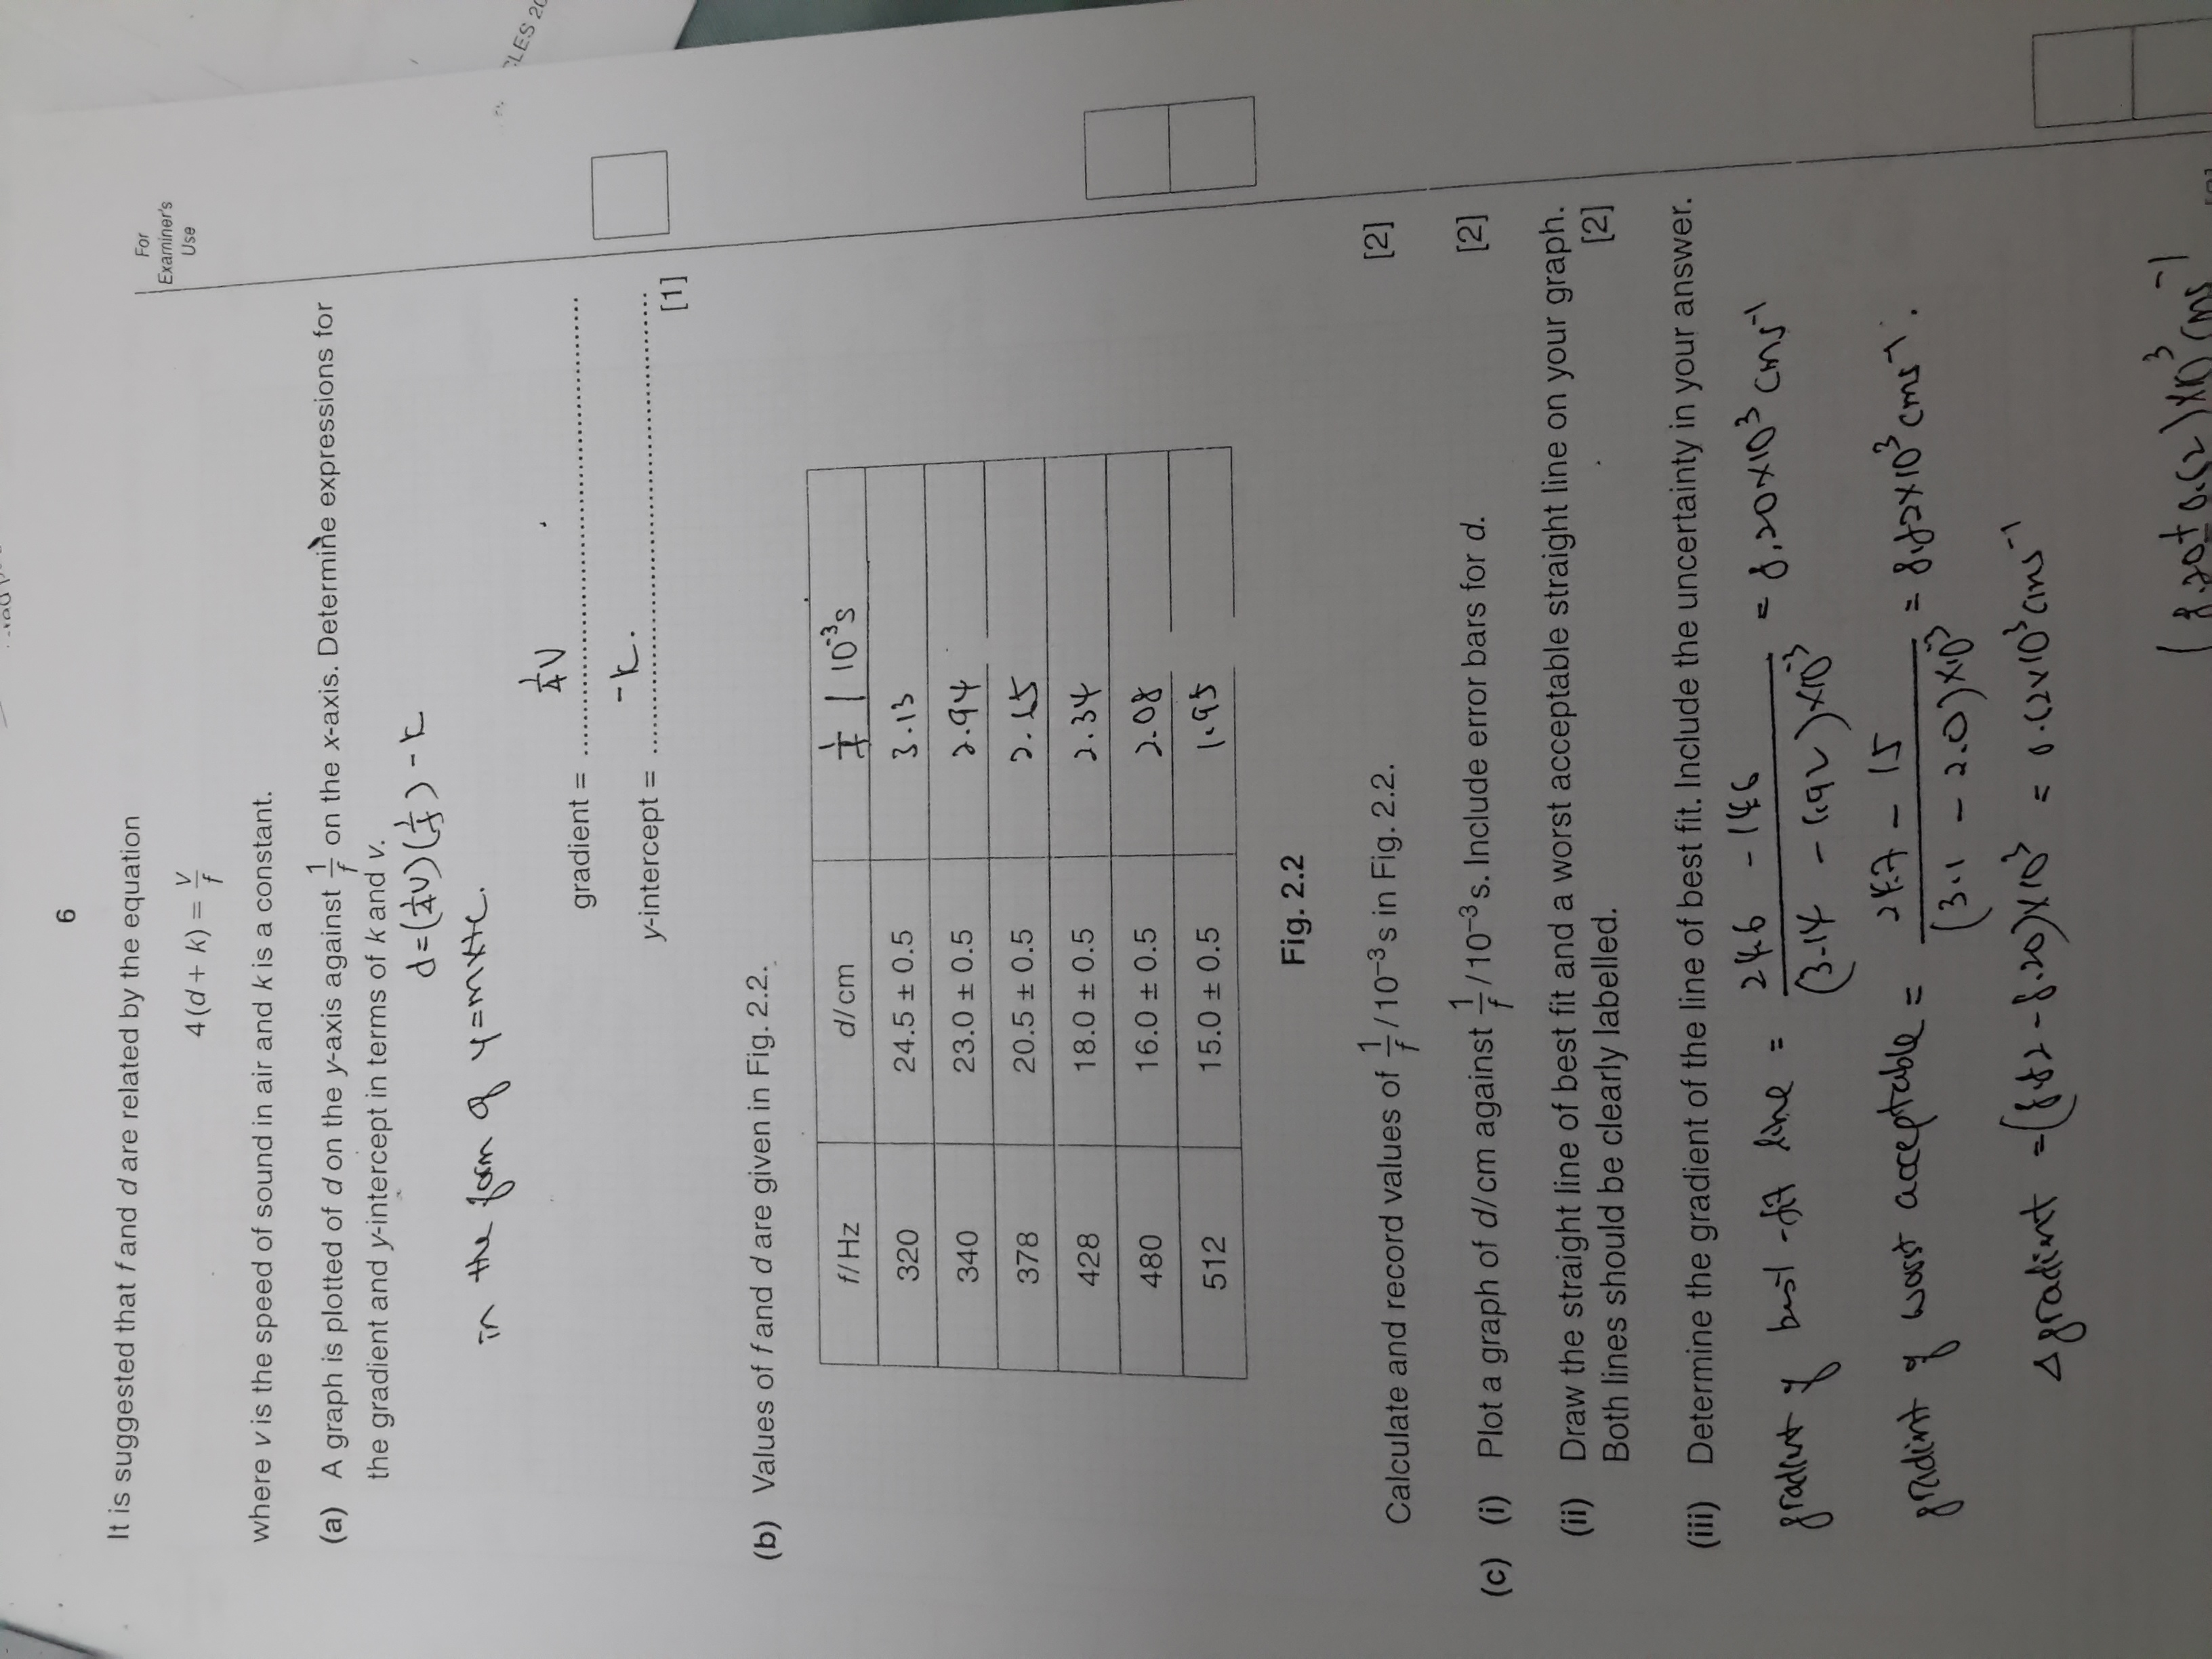 6
It is suggested that f and d are related by the equation
4(d + k) = v/f
For
Examiner's
Use
where v is the speed of sound in air and k is a constant.
(a) A graph is plotted of d on the y-axis against 1/f on the x-axis. Determine expressions for
the gradient and y-intercept in terms of k and v.
d=(1/4 v)(1/f) -k
in the form of y=mx+c.
gradient = 1/4 v
y-intercept = -k.
[1]
(b) Values of f and d are given in Fig. 2.2.
f/Hz d/cm 1/f | 10⁻³s
320 24.5 ± 0.5 3.13
340 23.0 ± 0.5 2.94
378 20.5 ± 0.5 2.65
428 18.0 ± 0.5 2.34
480 16.0 ± 0.5 2.08
512 15.0 ± 0.5 1.95
Fig. 2.2
Calculate and record values of 1/f /10⁻³s in Fig. 2.2. [2]
(c) (i) Plot a graph of d/cm against 1/f /10⁻³s. Include error bars for d. [2]
(ii) Draw the straight line of best fit and a worst acceptable straight line on your graph.
Both lines should be clearly labelled. [2]
(iii) Determine the gradient of the line of best fit. Include the uncertainty in your answer.
gradient of best-fit line = (24.6 - 14.6)/((3.14 - 1.92)×10⁻³) = 8.20×10³ cms⁻¹
gradient of worst acceptable = (24.7 - 15)/((3.1 - 2.0)×10⁻³) = 8.82×10³ cms⁻¹.
Δgradient =(8.82-8.20)×10³ = 0.62×10³cms⁻¹
(8.20±0.62)×10³cms⁻¹